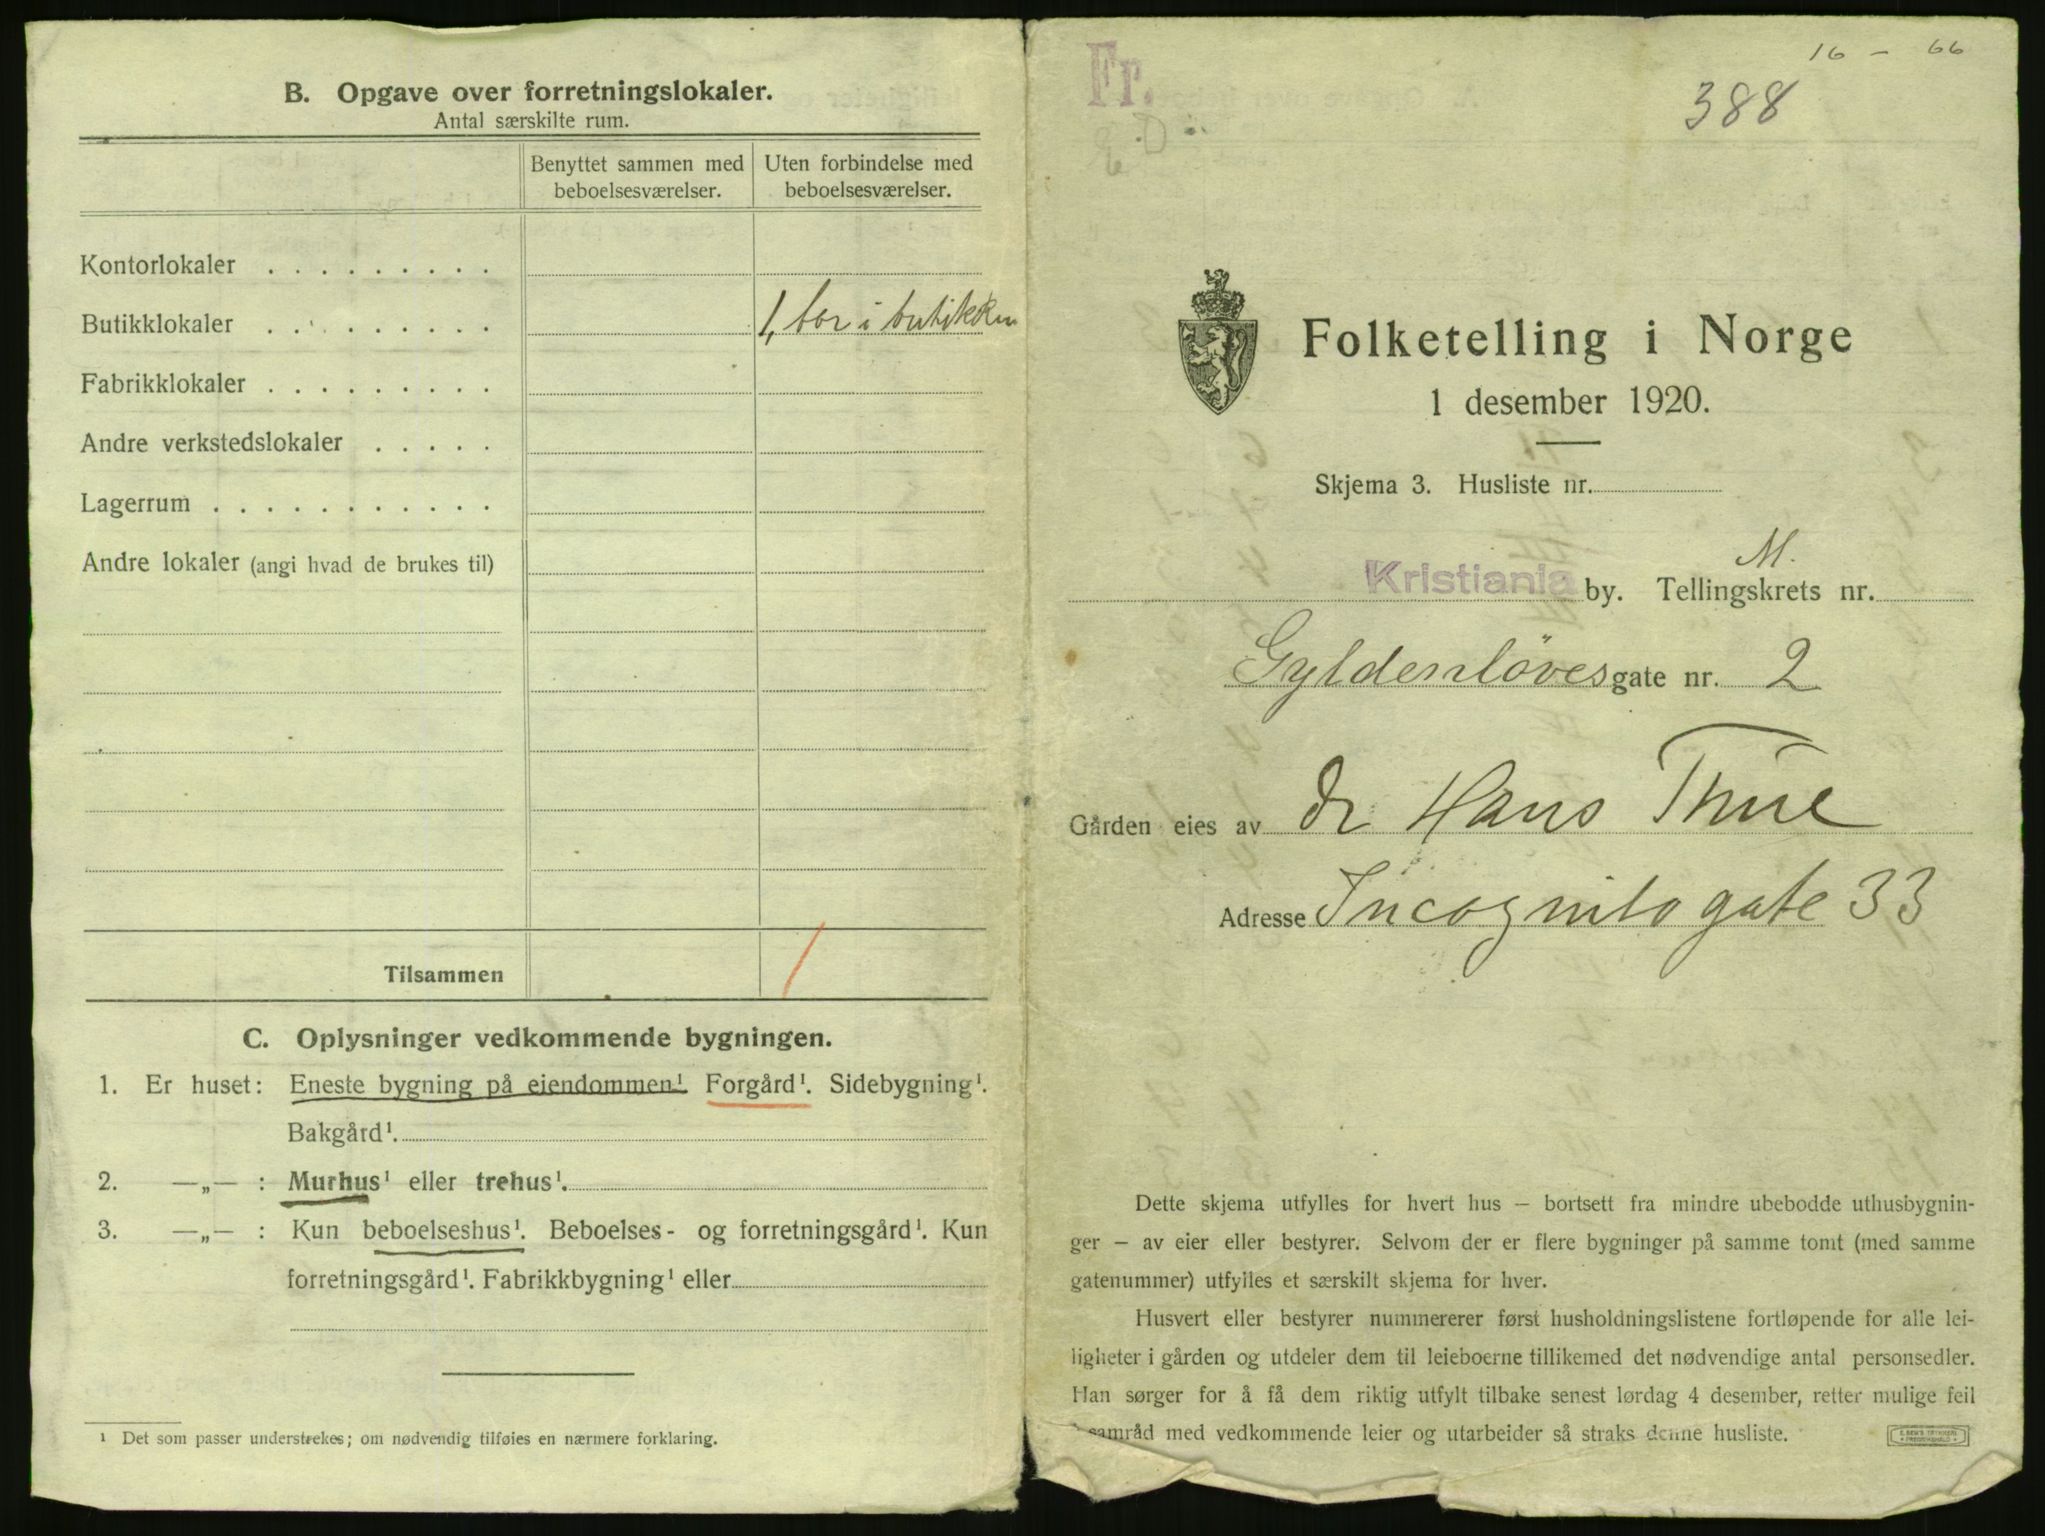 B. Opgave over forretningslokaler.
Antal særskilte rum.
Benyttet sammen med beboelsesværelser.
Uten forbindelse med beboelsesværelser.
Kontorlokaler . . . . . . . . .
Butikklokaler . . . . . . . . . 1, bor i butikken
Fabrikklokaler . . . . . . . . .
Andre verkstedslokaler . . . . .
Lagerrum . . . . . . . . . . .
Andre lokaler (angi hvad de brukes til)
Tilsammen 1
C. Oplysninger vedkommende bygningen.
1. Er huset: Eneste bygning på eiendommen¹. Forgård¹. Sidebygning¹.
Bakgård¹.
2. —„— : Murhus¹ eller trehus¹.
3. —„— : Kun beboelseshus¹. Beboelses- og forretningsgård¹. Kun
forretningsgård¹. Fabrikkbygning¹ eller
¹ Det som passer understrekes; om nødvendig tilføies en nærmere forklaring.
16 - 66
Fr.
388
D
Folketelling i Norge
1 desember 1920.
Skjema 3. Husliste nr.
M.
Kristiania by. Tellingskrets nr.
Gyldenløves gate nr. 2
Gården eies av dr Hans Thue
Adresse Incognito gate 33
Dette skjema utfylles for hvert hus — bortsett fra mindre ubebodde uthusbygnin-
ger — av eier eller bestyrer. Selvom der er flere bygninger på samme tomt (med samme
gatenummer) utfylles et særskilt skjema for hver.
Husvert eller bestyrer nummererer først husholdningslistene fortløpende for alle lei-
ligheter i gården og utdeler dem til leieboerne tillikemed det nødvendige antal personsedler.
Han sørger for å få dem riktig utfylt tilbake senest lørdag 4 desember, retter mulige feil
i samråd med vedkommende leier og utarbeider så straks denne husliste.